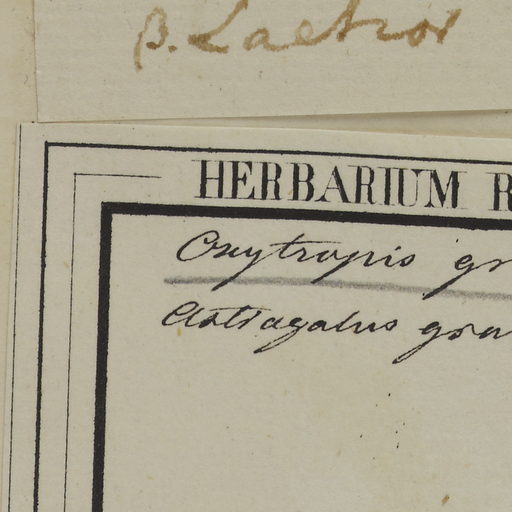 β. Laetior
HERBARIUM R
Oxytropis gr
Astragalus gra